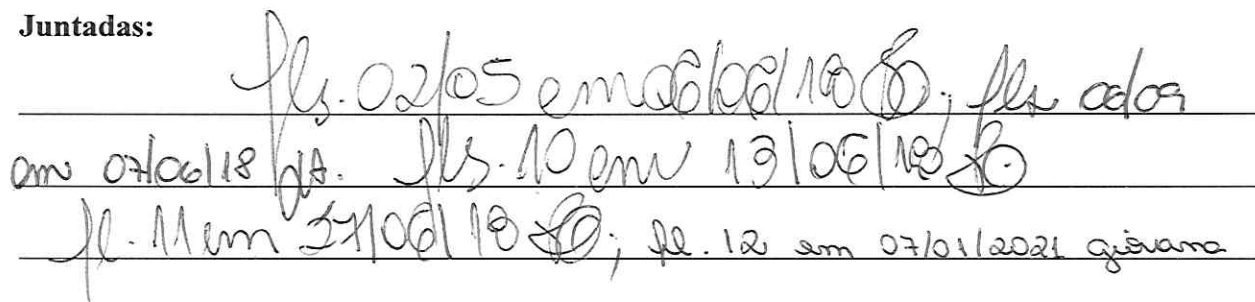 Juntadas:
fls. 02/05 em 06/06/18; fls 06/09
em 07/06/18 fls. 10 em 13/06/18
fl. 11 em 27/06/18; fl. 12 em 07/01/2021 giovana